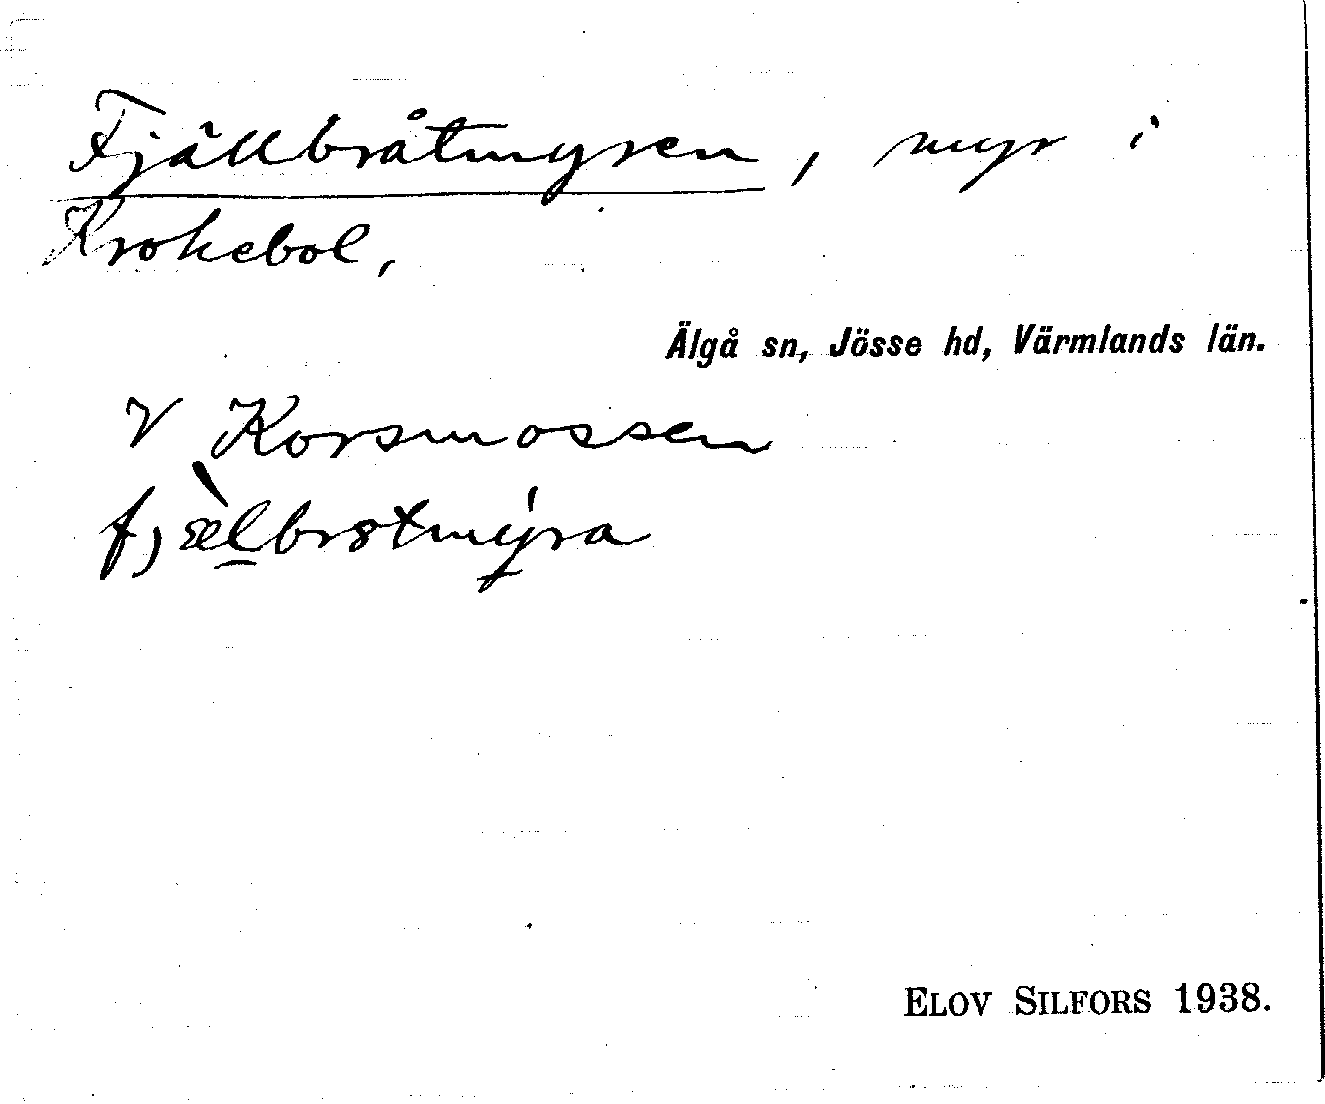 Fjällbråtmyren, myr i
Krokebol,
Älgå sn, Jösse hd, Värmlands län.
V Korsmossen
fjæ̀l̲brɞtmýra
ELOV SILFORS 1938.